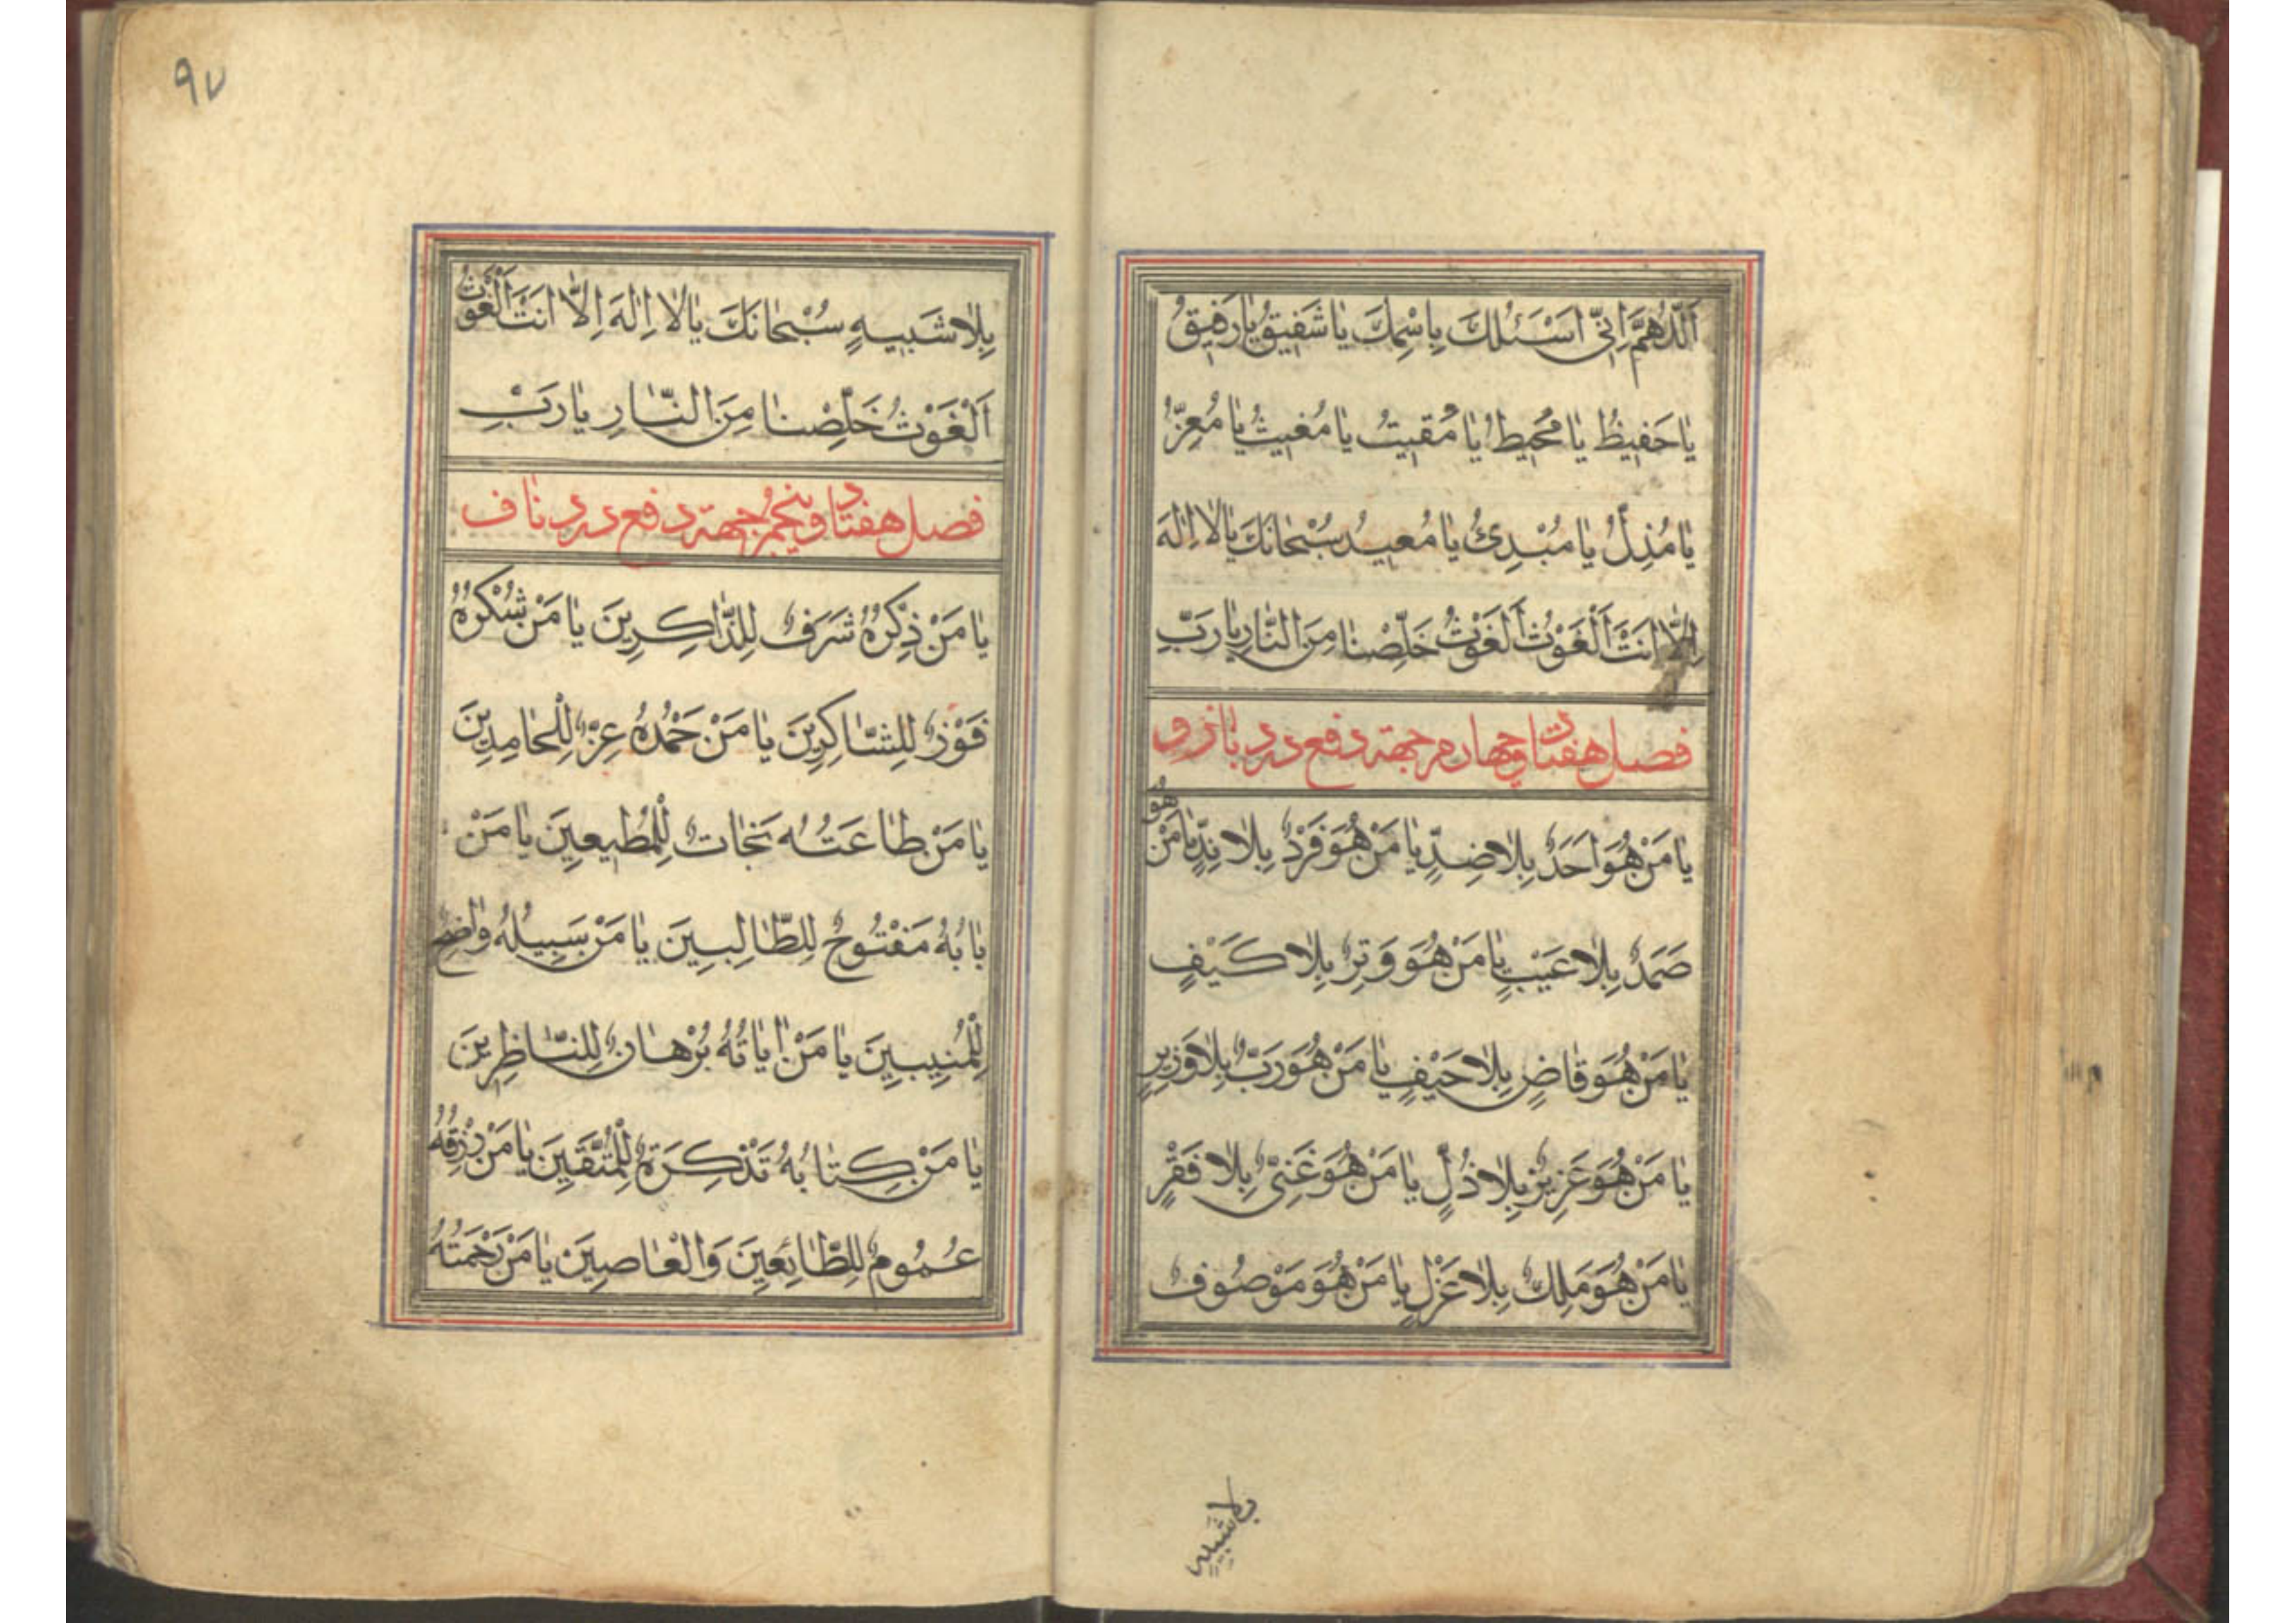 اَللّٰهُمَّ اِنّى اَسْئَلُكَ بِاسْمِكَ يٰا شَفيقُ يٰا رَفيقُ
يٰا حَفيظُ يٰا مُحيطُ يٰا مُقيتُ يٰا مُغيثُ يٰا مُعِزُّ
يٰا مُذِلُّ يٰا مُبْدِئُ يٰا مُعيدُ سُبْحٰانَكَ يٰا لاٰ اِلٰهَ
اِلاّٰ اَنْتَ اَلْغَوْثُ اَلْغَوْثُ خَلِّصْنٰا مِنَ النّٰارِ يٰا رَبِّ
فصل هفتاد و چهارم جهة دفع درد بازو
يٰا مَنْ هُوَ اَحَدٌ بِلاٰ ضِدٍّ يٰا مَنْ هُوَ فَرْدٌ بِلاٰ نِدٍّ يٰا مَنْ هُوَ
صَمَدٌ بِلاٰ عَيْبٍ يٰا مَنْ هُوَ وَتِرٌ بِلاٰ كَيْفٍ
يٰا مَنْ هُوَ قٰاضٍ بِلاٰ حَيْفٍ يٰا مَنْ هُوَ رَبٌّ بِلاٰ وَزيرٍ
يٰا مَنْ هُوَ عَزيزٌ بِلاٰ ذُلٍّ يٰا مَنْ هُوَ غَنِىٌّ بِلاٰ فَقْرٍ
يٰا مَنْ هُوَ مَلِكٌ بِلاٰ عَزْلٍ يٰا مَنْ هُوَ مَوْصُوفٌ
بلا شَبيهٍ
٩٧
بِلاٰ شَبيهٍ سُبْحٰانَكَ يٰا لاٰ اِلٰهَ اِلاّٰ اَنْتَ اَلْغَوْثُ
اَلْغَوْثُ خَلِّصْنٰا مِنَ النّٰارِ يٰا رَبِّ
فصل هفتاد و پنجم جهة دفع درد ناف
يٰا مَنْ ذِكْرُهُ شَرَفٌ لِلذّٰاكِرينَ يٰا مَنْ شُكْرُهُ
فَوْزٌ لِلشّٰاكِرينَ يٰا مَنْ حَمْدُهُ عِزٌّ لِلْحٰامِدينَ
يٰا مَنْ طٰاعَتُهُ نَجٰاتٌ لِلْمُطيعينَ يٰا مَنْ
بٰابُهُ مَفْتُوحٌ لِلطّٰالِبينَ يٰا مَنْ سَبيلُهُ وٰاضِحٌ
لِلْمُنيبينَ يٰا مَنْ اٰيٰاتُهُ بُرْهٰانٌ لِلنّٰاظِرينَ
يٰا مَنْ كِتٰابُهُ تَذْكِرَةٌ لِلْمُتَّقينَ يٰا مَنْ رِزْقُهُ
عُمُومٌ لِلطّٰائِعينَ وَالْعٰاصينَ يٰا مَنْ رَحْمَتُهُ